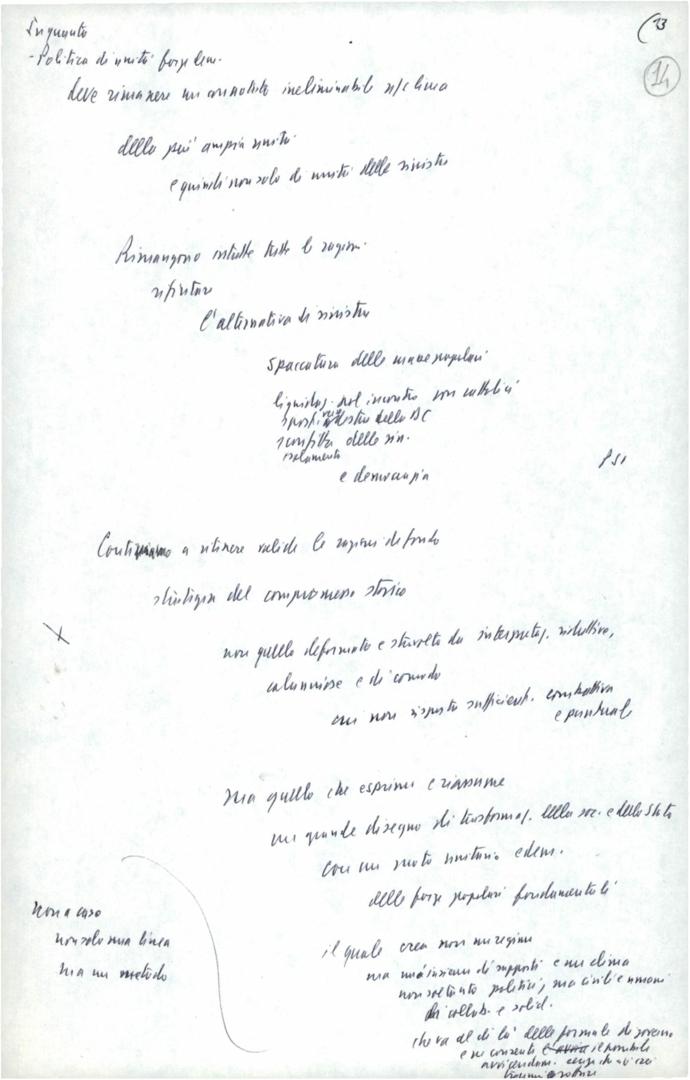 Inquanto
(13
14
- Politica di unità forze dem.
deve rimanere un connotato ineliminabile n/s linea
della più ampia unità
e quindi non solo di unità delle sinistre
Rimangono intatte tutte le ragioni
rifiutare
l'alternativa di sinistra
spaccatura delle masse popolari
liquidaz. incontro con cattolici
destra della DC
sconfitta delle sin.
isolamento
PSI
e democrazia
Continuiamo a ritenere valide le ragioni di fondo
strategia del compromesso storico
X
non quello deformato e stravolto da interpretaz. riduttive,
calunniose e di comodo
cui non risposto sufficient. combattiva
e puntuale
ma quello che esprime e riassume
un grande disegno di trasformaz. della soc. e dello Stato
con un moto unitario e dem.
delle forze popolari fondamentali
Non a caso
non solo una linea
ma un metodo
il quale crea non un regime
ma un'insieme di rapporti e un clima
non soltanto politici, ma civili e umani
di collab. e solid.
che va al di là delle formule di governo
e ne consente il possibile